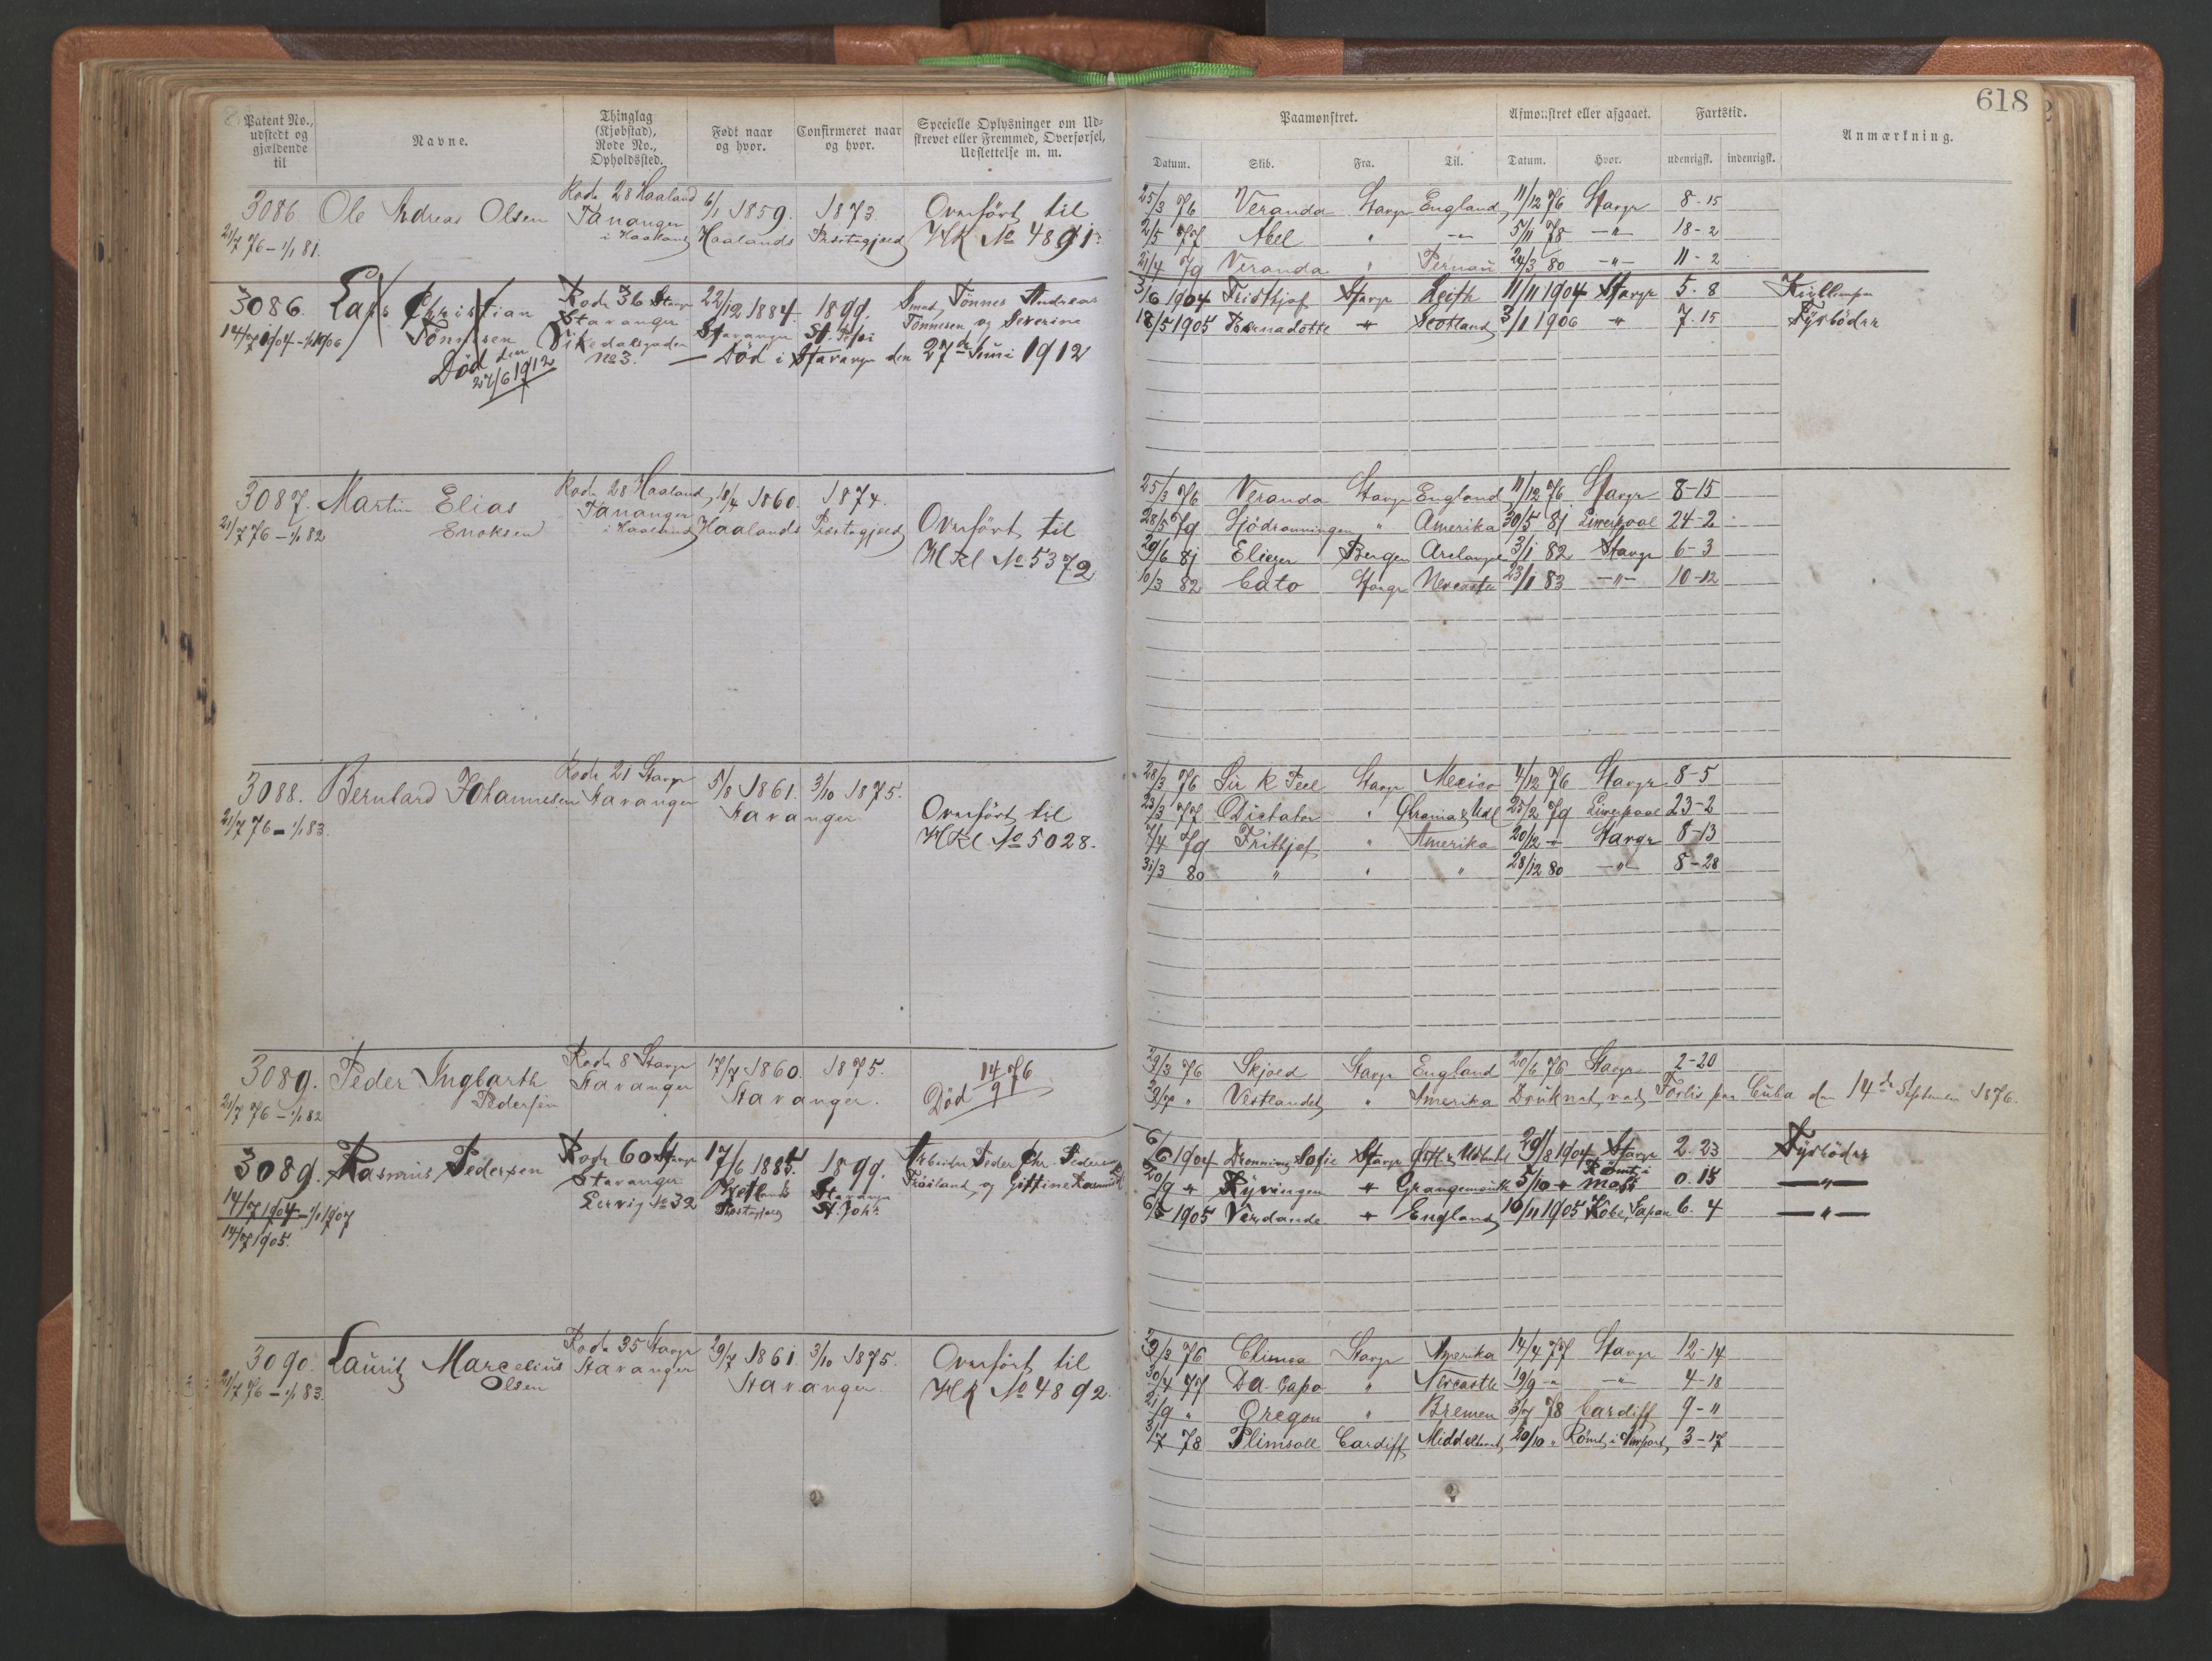 618
Patent No., udstedt og gjældende til
Navne.
Thinglag (Kjøbstad), Rode No., Opholdssted.
Født naar og hvor.
Confirmeret naar og hvor.
Specielle Oplysninger om Udskrevet eller Fremmed, Overførsel, Udslettelse m. m.
Paamønstret.
Afmønstret eller afgaaet.
Fartstid.
Anmærkning.
Datum. Skib. Fra. Til. Datum. Hvor. udenrigsk. indenrigsk.
3086. Ole Adreas Olsen Rode 28 Haaland 6/1 1859. 1873. Overført til
21/7 76 – 1/1 81. Tananger i Haaland Haalands Præstegjæld HK No 4891.
25/3 76 Veranda Stavgr England 11/12 76 Stavgr 8-15
2/5 77 Abel " -"- 5/11 78 -"- 18-2
21/4 79 Veranda " Pernau 24/3 80 -"- 11-2
3086. Lars Christian Tönnesen Rode 36 Stavgr 22/12 1884. 1899. Smed, Tönnes Andreas
14/7 1904 – 1/1 1906 Stavanger Stavanger St. Petri Tönnesen og Severine
No 3. — Död i Stavanger den 27de Juni 1912
Död den 27/6 1912
3/6 1904 Fridthjof Stavgr Leith 11/11 1904 Stavgr 5. 8
18/5 1905 Bernadotte " Scotland 3/1 1906 " 7. 15 Fyrböder
3087. Martin Elias Enoksen Rode 28 Haaland 18/4 1860. 1874.
21/7 76 – 1/1 82 Tananger i Haaland Haalands Præstegjæld Overført til
HKl No 5372
25/3 76 Veranda Stavgr England 11/12 76 Stavgr 8-15
28/5 79 Sjödronningen " Amerika 30/5 81 Liverpool 24-2
29/6 81 Eliezer Bergen 3/1 82 Stavgr 6-3
10/3 82 Cato Stavgr Newcastle 23/1 83 -"- 10-12
3088. Bernhard Johannesen Rode 21 Stavgr 5/8 1861. 3/10 1875.
21/7 76 – 1/1 83. Stavanger Stavanger Overført til
HKl No 5028.
28/3 76 Sir R Peel Stavgr Mexico 4/12 76 Stavgr 8-5
23/3 77 Dictator " 25/2 79 Liverpool 23-2
7/4 79 Frithjof " Amerika 20/12 " Stavgr 8-13
31/3 80 " " " 28/12 80 -"- 8-28
3089. Peder Ingbarth Pedersen Rode 8 Stavgr 17/7 1860. 1875. Död 14/9 76
21/7 76 – 1/1 82 Stavanger Stavanger.
29/3 76 Skjold Stavgr England 20/6 76 Stavgr 2-20
" Vestlandet " Amerika Druknet ved Forlis paa Cuba den 14de September 1876.
3089. Rasmus Pedersen Rode 60 Stavgr 17/6 1885. 1899. Arbeider Peder Chr. Pedersen
14/7 1904 – 1/1 1907 Stavanger No 32 Præstegjæld Stavanger St. Joh. og Gittine
14/7 1905.
6/6 1904 Dronning Sofie Stavgr 29/8 1904 Stavgr 2. 23 Fyrböder
20/9 " " Grangemouth 5/10 " Römt i Moss 0. 15 —"—
6/5 1905 Verdande " England 10/11 1905 Kobe, Japan 6. 4 —"—
3090. Lauritz Marcelius Olsen Rode 35 Stavgr 29/7 1861. 3/10 1875. Overført til
21/7 76 – 1/1 83. Stavanger Stavanger. HK No 4892.
29/3 76 Stavgr Amerika 14/4 77 Stavgr 12-14
30/4 77 Da Capo " Newcastle 19/9 " -"- 4-18
21/9 " Oregon " Bremen 3/7 78 Cardiff 9-"
3/7 78 Plimsoll Cardiff Middelhavet 20/10 " Römt i Newport 3-17